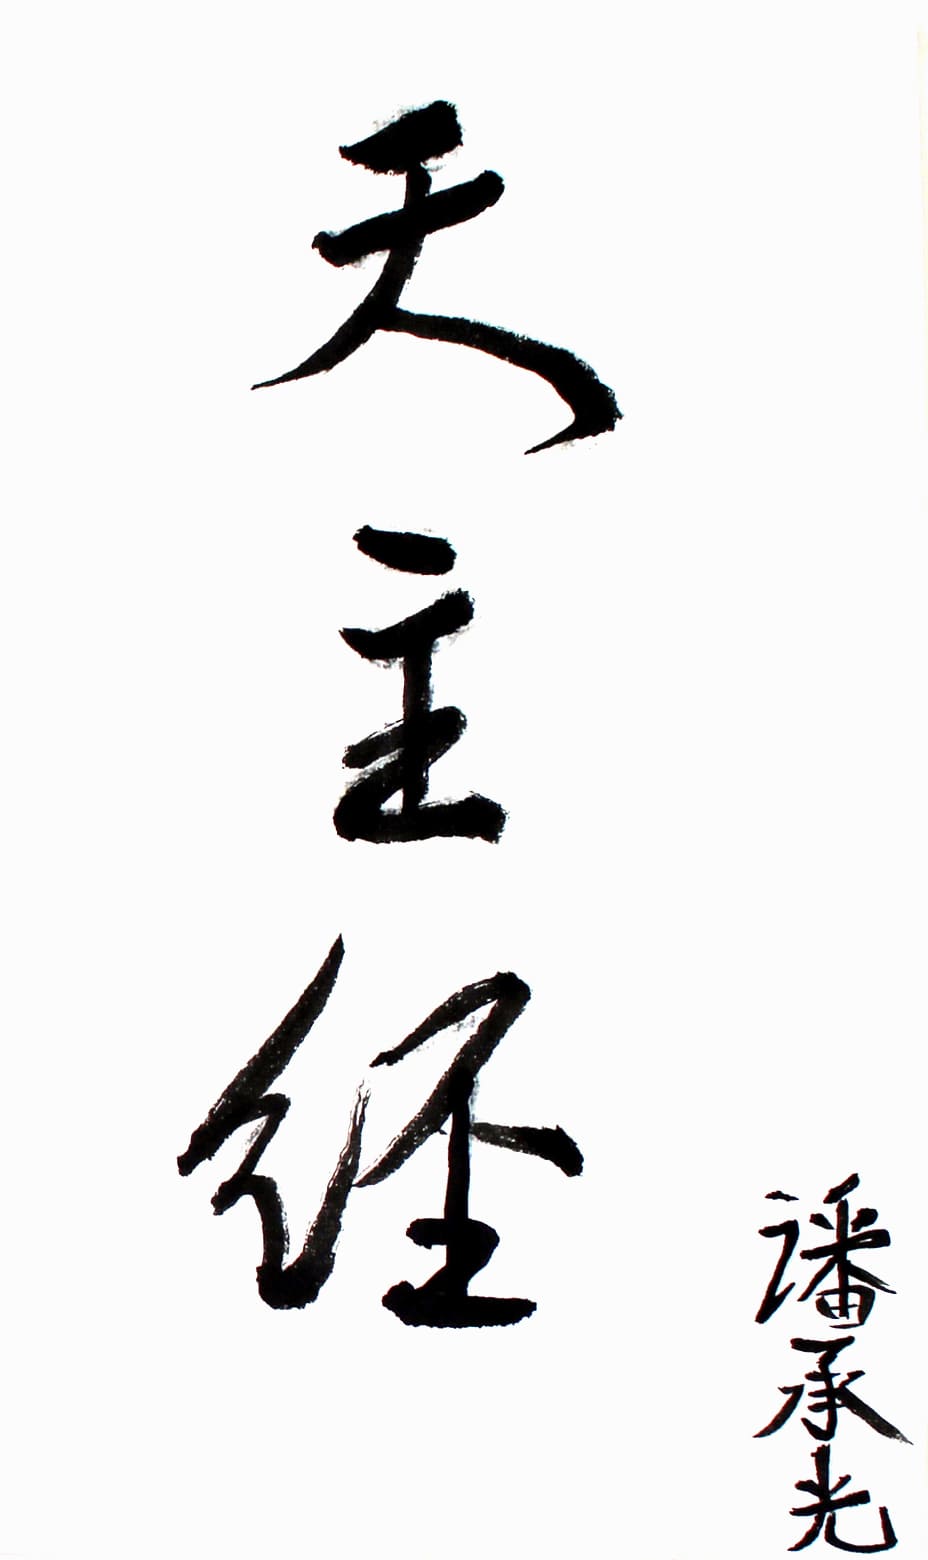 天主经
潘承光